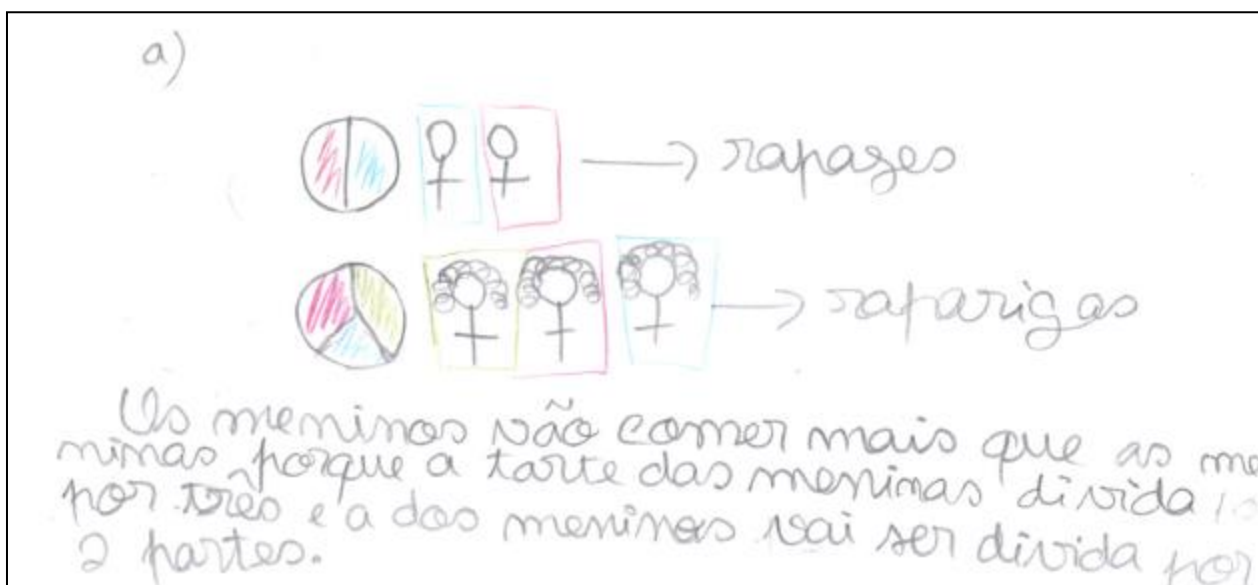 a)
→ rapazes
→ raparigas
Os meninos vão comer mais que as me
ninas porque a tarte das meninas divida
por três e a dos meninos vai ser divida por
2 partes.